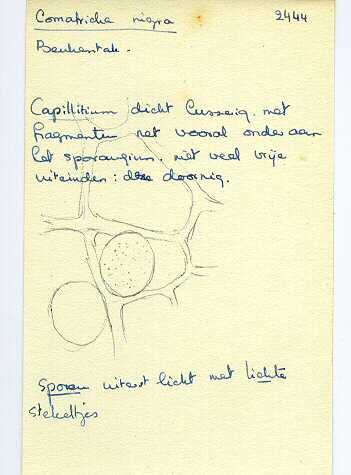 Comatricha nigra 2444
Beukentak.
Capillitium dicht lussig, met
fragmenten net vooral onderaan
het sporangium. met veel vrije
uiteinden: deze doornig.
Sporen uiterst licht met lichte
stekeltjes